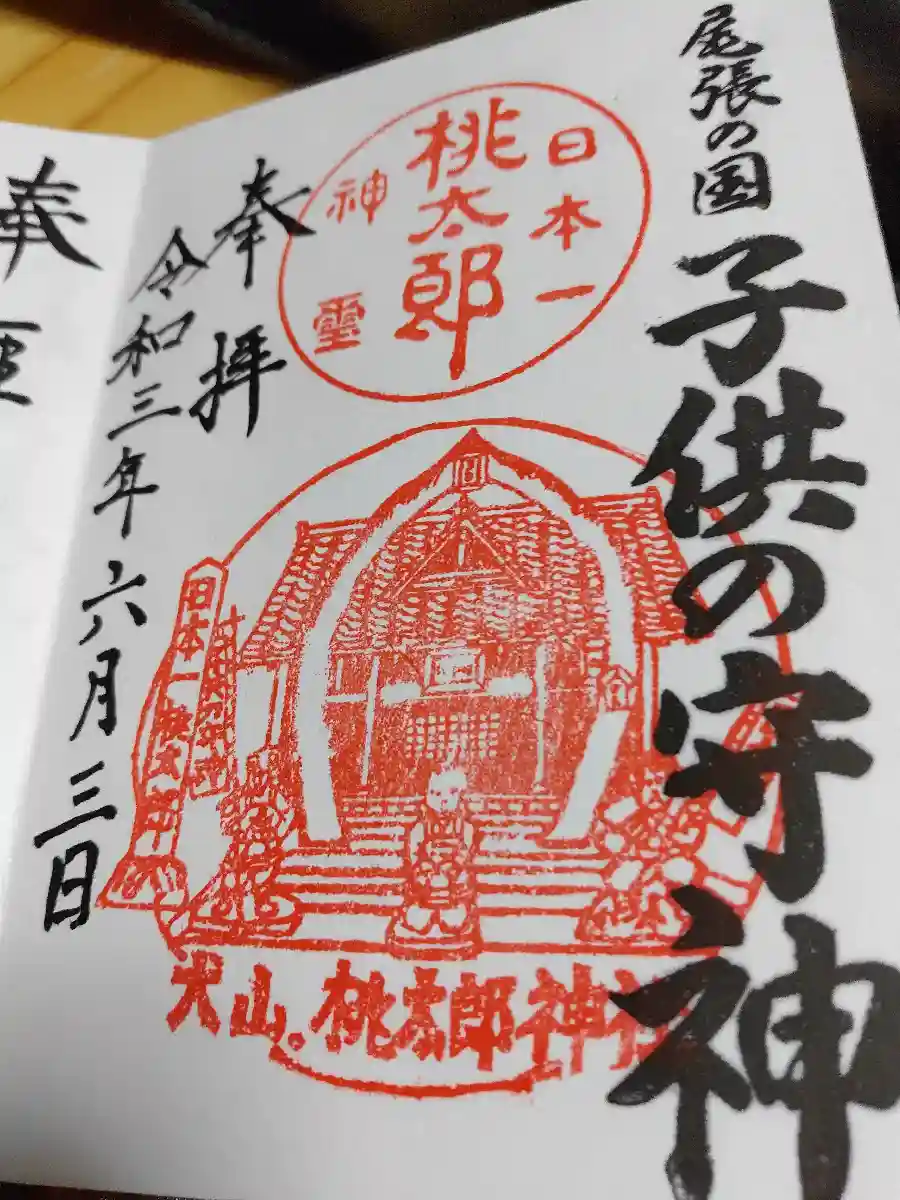 尾張の国
子供の守神
日本一
桃太郎
神霊
奉拝
令和三年六月三日
日本一桃太郎
犬山。桃太郎神社